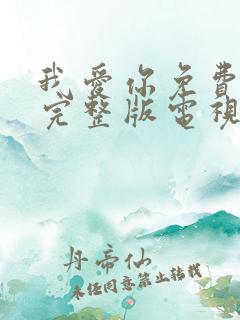 我愛你免費
完整版電視
丹帝仙
未经同意禁止转载